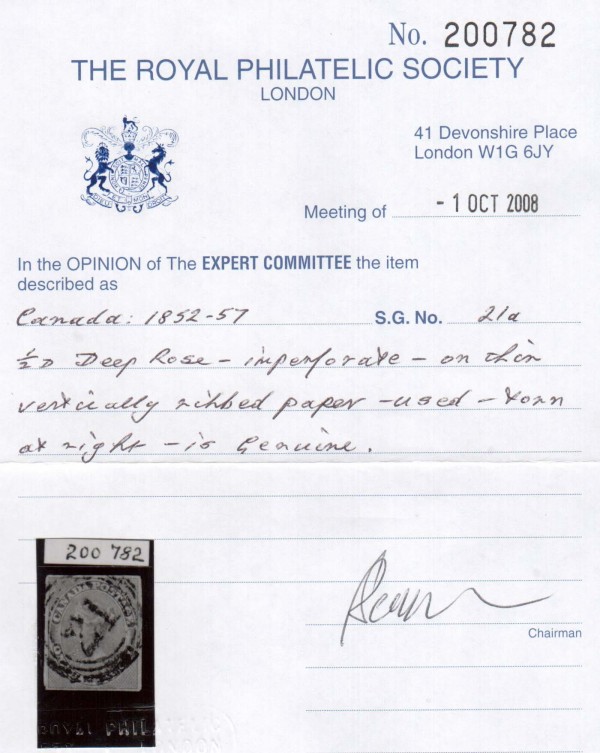 No. 200782
THE ROYAL PHILATELIC SOCIETY
LONDON
41 Devonshire Place
London W1G 6JY
Meeting of - 1 OCT 2008
In the OPINION of The EXPERT COMMITTEE the item
described as
Canada: 1852-57 S.G. No. 21a
½D Deep Rose - imperforate - on thin
vertically ribbed paper - used - torn
at right - is Genuine.
200 782
CANADA
Chairman
ROYAL PHILATELIC
LONDON